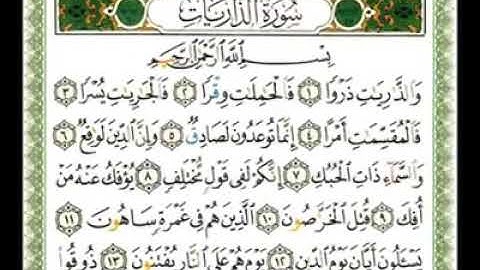 سُورَةُ الذَّارِيَاتِ
بِسْمِ اللَّهِ الرَّحْمَٰنِ الرَّحِيمِ
وَالذَّارِيَاتِ ذَرْوًا ١ فَالْحَامِلَاتِ وِقْرًا ٢ فَالْجَارِيَاتِ يُسْرًا ٣
فَالْمُقَسِّمَاتِ أَمْرًا ٤ إِنَّمَا تُوعَدُونَ لَصَادِقٌ ٥ وَإِنَّ الدِّينَ لَوَاقِعٌ ٦
وَالسَّمَاءِ ذَاتِ الْحُبُكِ ٧ إِنَّكُمْ لَفِي قَوْلٍ مُّخْتَلِفٍ ٨ يُؤْفَكُ عَنْهُ مَنْ
أُفِكَ ٩ قُتِلَ الْخَرَّاصُونَ ١٠ الَّذِينَ هُمْ فِي غَمْرَةٍ سَاهُونَ ١١
يَسْأَلُونَ أَيَّانَ يَوْمُ الدِّينِ ١٢ يَوْمَ هُمْ عَلَى النَّارِ يُفْتَنُونَ ١٣ ذُوقُوا